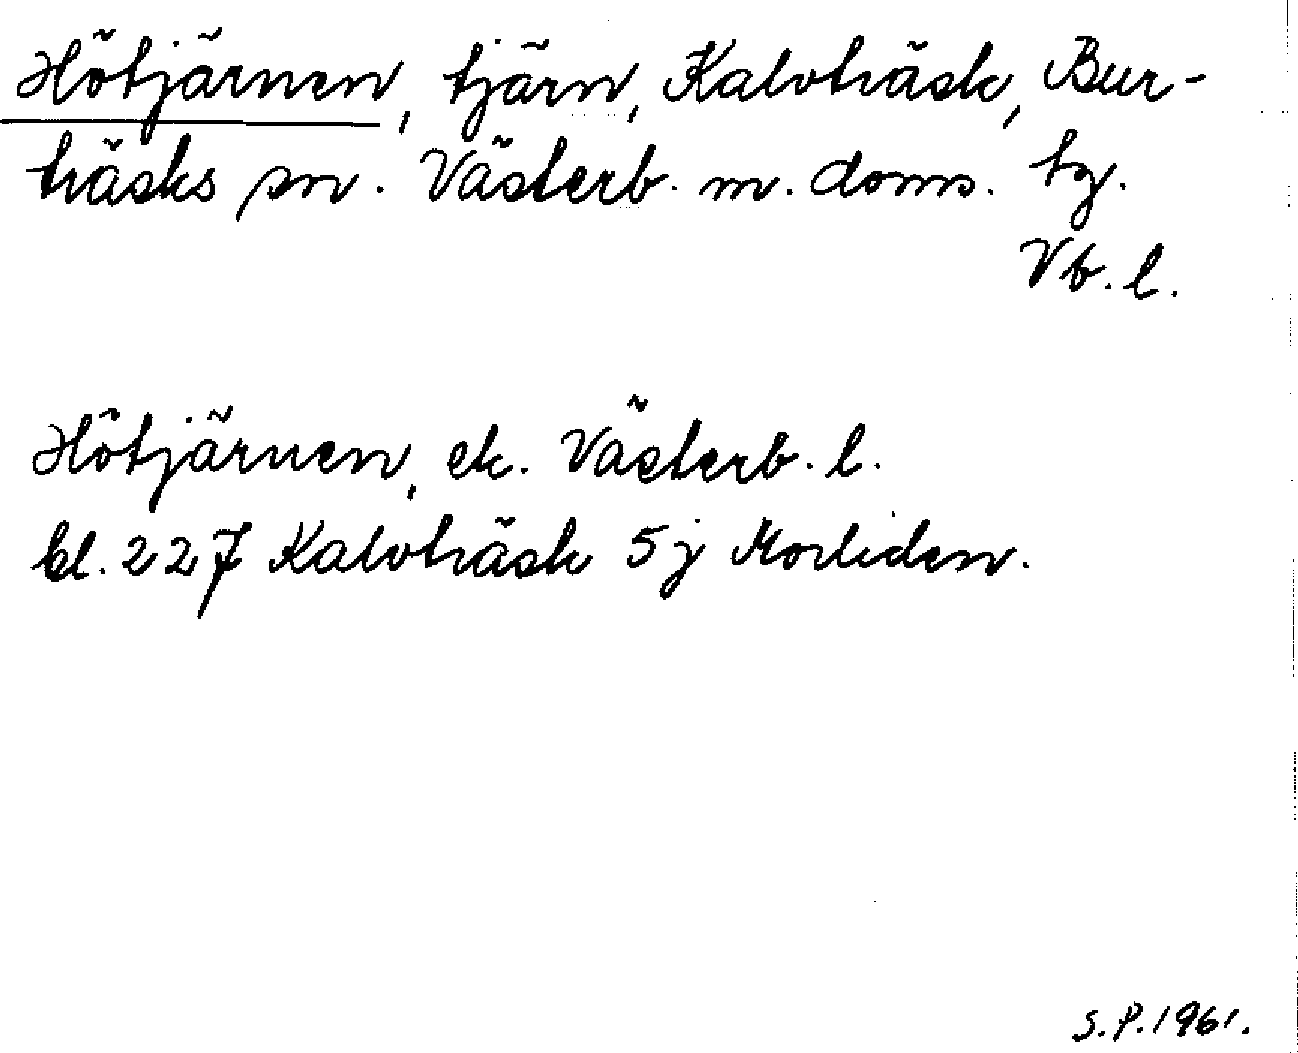 Hötjärnen, tjärn, Kalvträsk, Bur-
träsks sn. Västerb. m. doms. tg.
Vb. l.
Hötjärnen, ek. Västerb. l.
bl. 227 Kalvträsk 5j Morliden.
S.P. 1961.